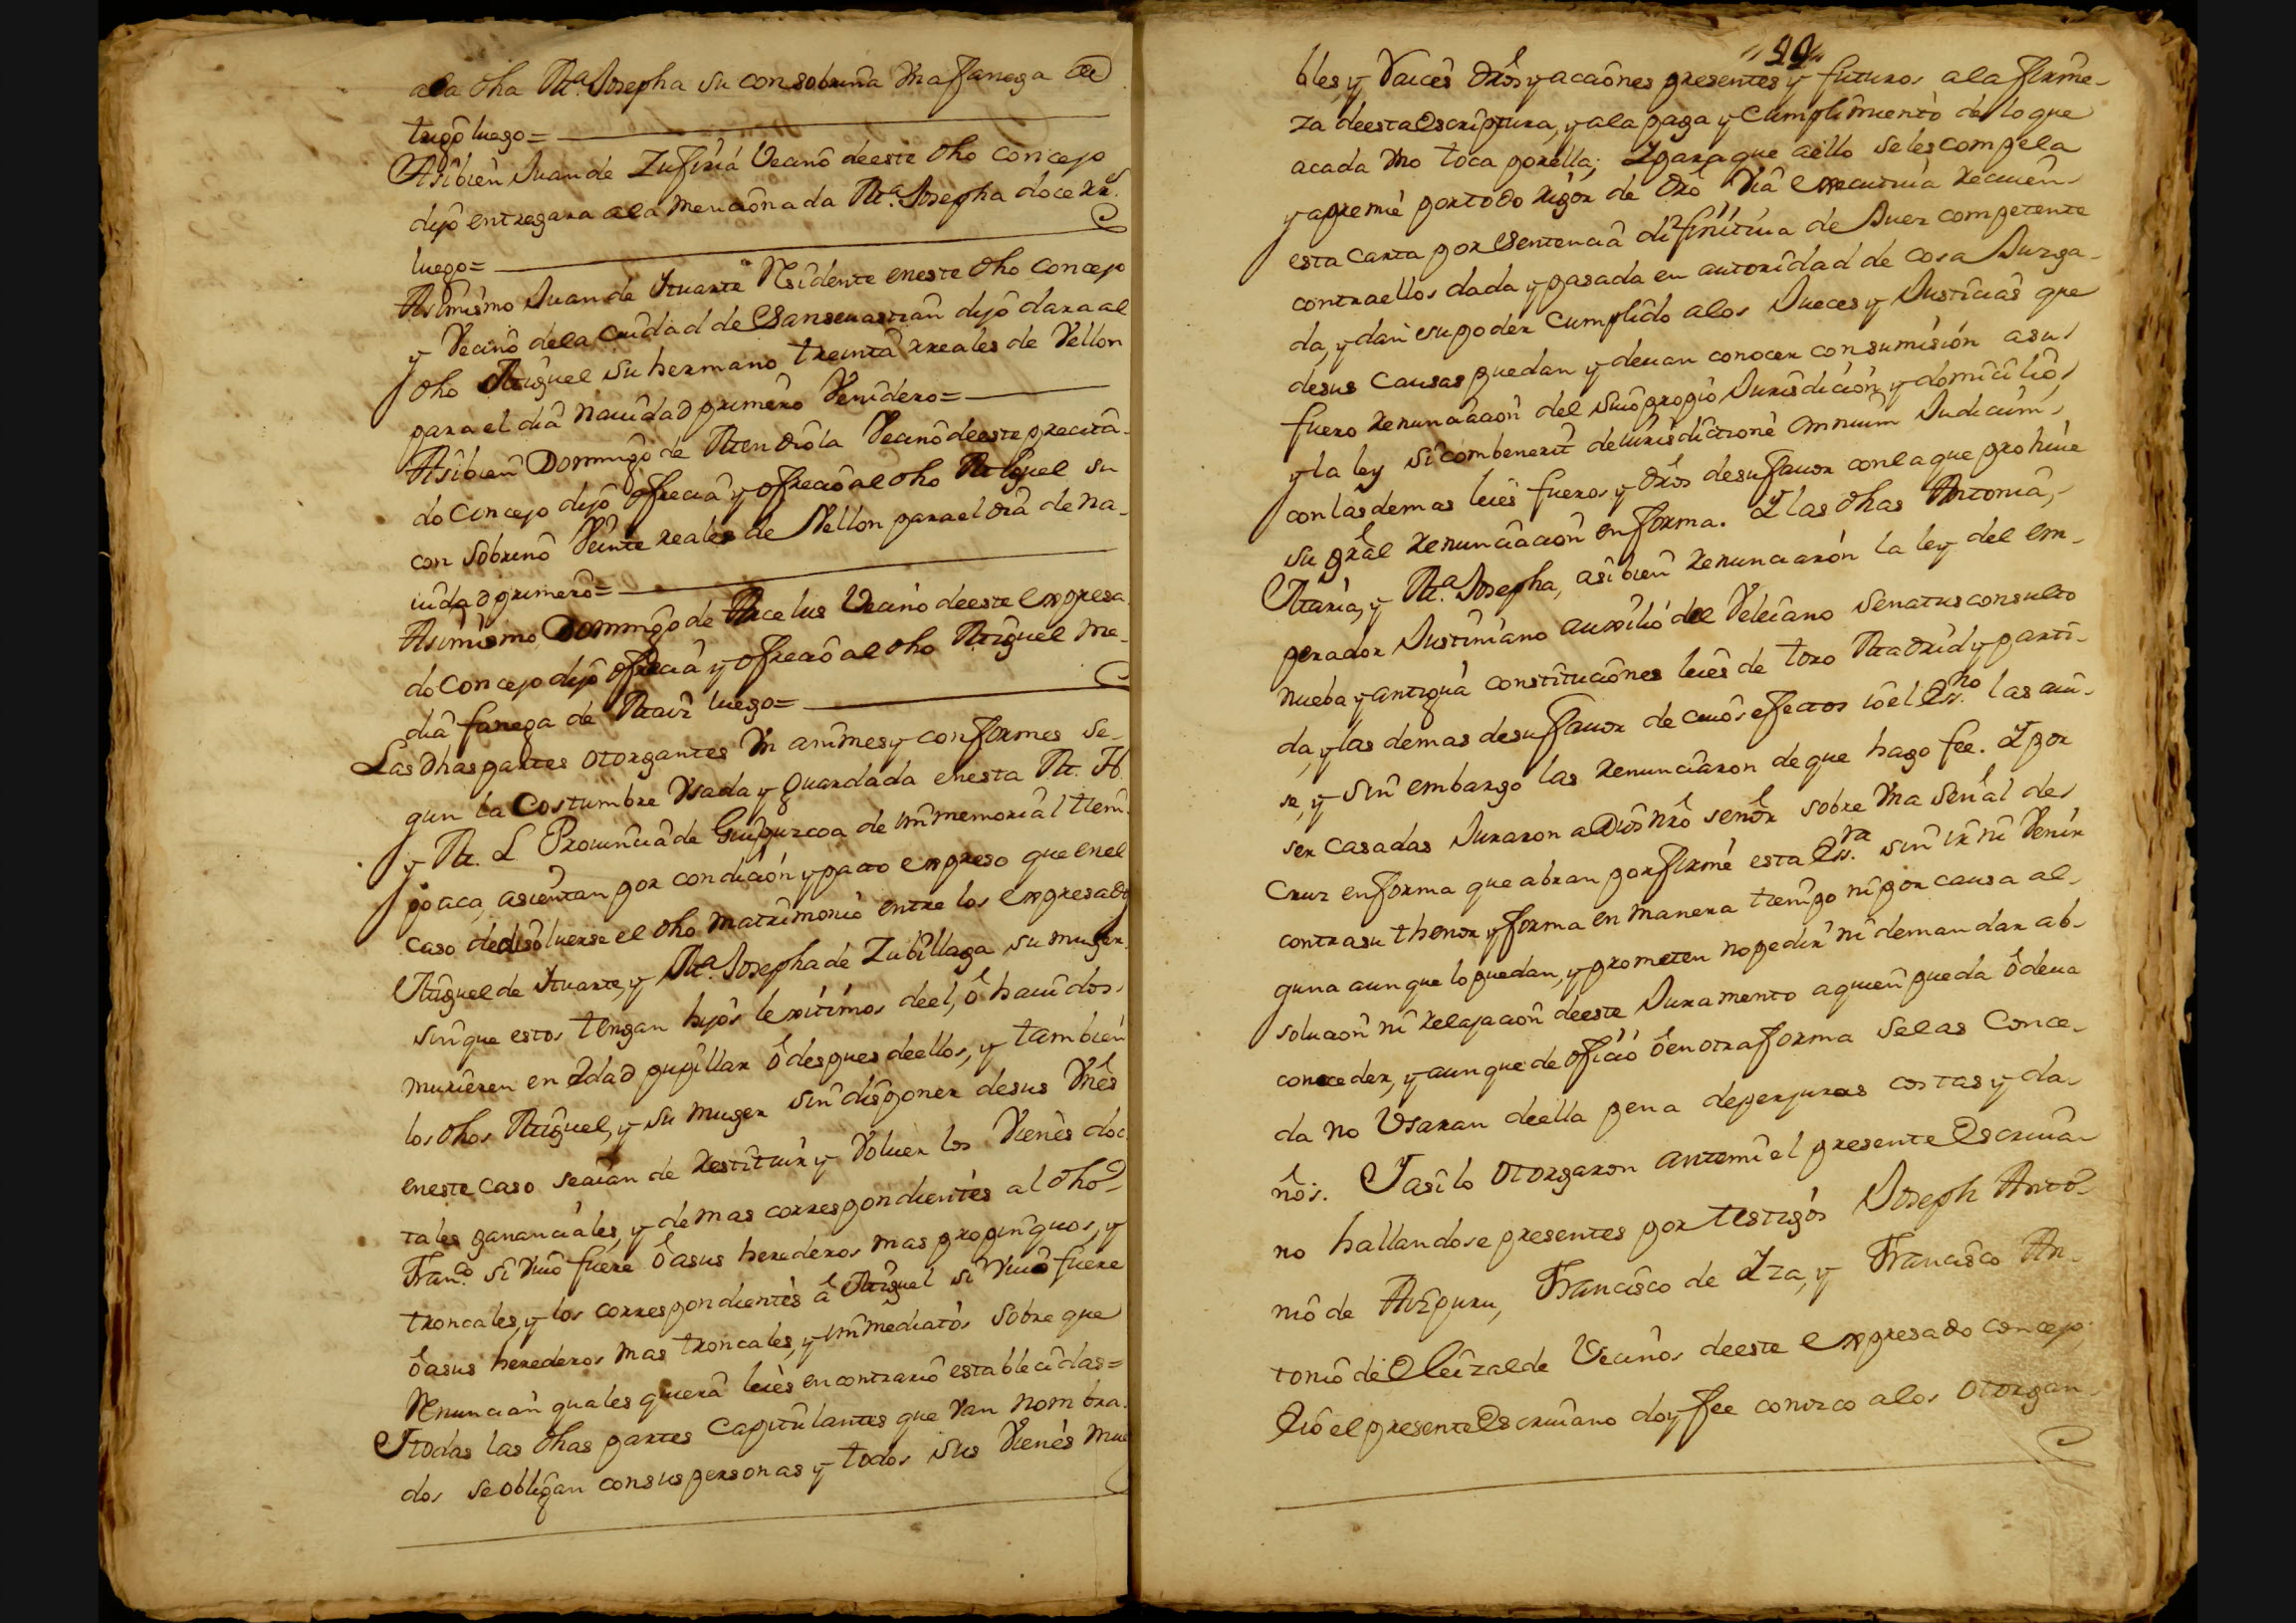 ala dha Mª Josepha su consobrina Vna fanega de
trigo luego=
Asibien Juan de Zufiria Vecino deeste dho concejo
dijo entregara ala mencionada Mª Josepha doce Rs.
luego=
Asimismo Juan de Ituarte Residente eneste dho concejo
y Vecino dela Ciudad de Sansevastian dijo dara al
dho Miguel su hermano treinta rreales de Vellon
para el dia Navidad primero Venidero=
Asibien Domingo de Mendiola Vecino deeste precita-
do Concejo dijo ofrecia y ofrecio al dho Miguel su
con sobrino Veinte reales de Vellon para el dia de Na-
uidad primero=
Asimismo Domingo de Arcelus Vecino deeste expresa
do Concejo dijo ofrecia y ofrecio al dho Miguel me-
dia fanega de Maiz luego=
Las dhas partes otorgantes Vn animes y conformes Se-
gun la Costumbre Vsada y Guardada enesta M. N.
y M. L Provincia de Guipuzcoa de immemorial tiem
po aca, asientan por condicion y pacto expreso que enel
caso dedisoluerse el dho matrimonio entre los expresado
Miguel de Ituarte, y Mª Josepha de Zubillaga su muger
sin que estos tengan hijos lexitimos deel, ô hauidos
murieren en Edad pupillar ô despues deellos, y tambien
los dhos Miguel, y su muger sin disponer desus Vnes
eneste caso seaian de restituir y Voluer los Vienes do
tales gananciales, y demas correspondientes al dho
Franco. si viuo fuere ô asus herederos mas propinquos, y
troncales, y los correspondientes â Miguel si viuo fuere
ô asus herederos mas troncales, y immediatos sobre que
Renuncian quales quiera leies en contrario establecidas=
Y todas las dhas partes Capitulantes que Van nombra
dos se obligan consus personas y todos sus Vienes mue
"99"
bles, y Raices dros y acciones presentes y futuros ala firme-
za deesta Escriptura, y ala paga y Cumplimiento de lo que
acada Vno toca porella; Y para que aello seles compela
y apremie por todo rigor de dro Via executiva reciuen
esta Carta por Sentencia difinitiua de Juez competente
contraellos dada y pasada en autoridad de cosa Juzga-
da, y dan supoder Cumplido alos Jueces y Justicias que
desus Causas puedan y deuan conocer consumision asu
fuero Renunciacion del suio propio Jurisdicion, y domicilio,
y la ley si combenerit deiurisdictione Omnium Judicum,
con las demas leies fueros y dros desufauor conla que prohiue
su gral Renunciacion en forma. Y las dhas Antonia,
Maria, y Mª Josepha, asibien renunciaron la ley del em-
perador Justiniano auxilio del Veleiano Senatus consulto
nueba y antigua constituciones leies de toro Madrid y parti-
da, y las demas desufauor de cuios efectos io el Essno las aui-
se, y sin embargo las renunciaron de que hago fee. Y por
ser Casadas Juraron a Dios nro señor sobre Vna señal de
Cruz enforma que abran por firme esta Essra. sin ir ni Venir
contra su thenor y forma en manera tiempo ni por causa al-
guna aun que lo puedan, y prometen no pedir ni demandar ab-
solucion ni relajacion deeste Juramento aquien pueda ô deua
conceder, y aunque de oficio ô en otra forma Selas Conce-
da no Vsaran deella pena deperjuras costas y da-
ños. Y asilo otorgaron antemi el presente Escriua-
no hallandose presentes por testigos Joseph Anto-
nio de Aizpuru, Francisco de Yza, y Francisco An-
tonio de Eleizalde Vecinos deeste expresado concejo;
Y io el presente Escriuano doy fee conozco alos Otorgan-